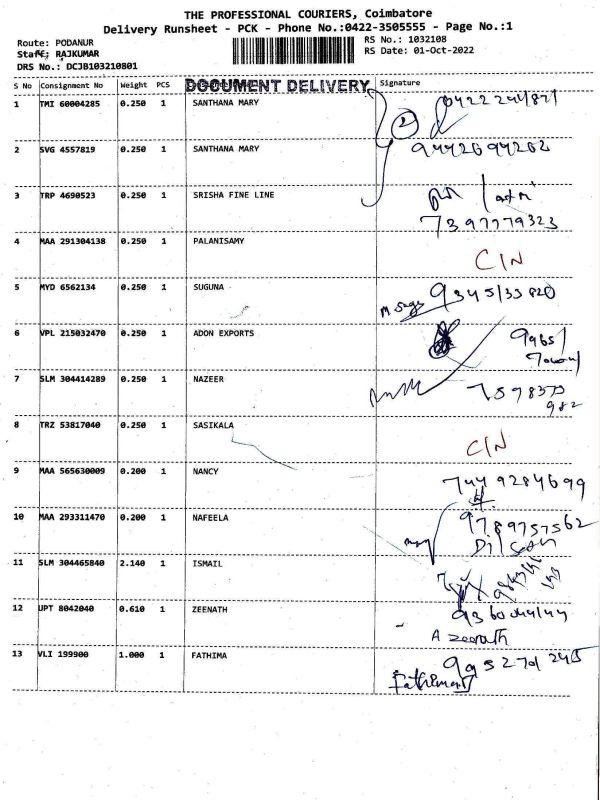 THE PROFESSIONAL COURIERS, Coimbatore
Delivery Runsheet - PCK - Phone No.:0422-3505555 - Page No.:1
Route: PODANUR
RS No.: 1032108
Staff: RAJKUMAR
RS Date: 01-Oct-2022
DRS No.: DCJB103210801
S No Consignment No Weight PCS DOCUMENT DELIVERY Signature
1 TMI 60004285 0.250 1 SANTHANA MARY
2 SVG 4557819 0.250 1 SANTHANA MARY 9442694262
3 TRP 4690523 0.250 1 SRISHA FINE LINE
7397779323
4 MAA 291304138 0.250 1 PALANISAMY
C/N
5 MYD 6562134 0.250 1 SUGUNA 9345133820
6 VPL 215032470 0.250 1 ADON EXPORTS
7 SLM 304414289 0.250 1 NAZEER
7598373
982
8 TRZ 53817040 0.250 1 SASIKALA
C/N
9 MAA 565630009 0.200 1 NANCY
7449284699
10 MAA 293311470 0.200 1 NAFEELA 9789757562
11 SLM 304465840 2.140 1 ISMAIL
12 UPT 8042040 0.610 1 ZEENATH
A Zeenath
13 VLI 199900 1.000 1 FATHIMA